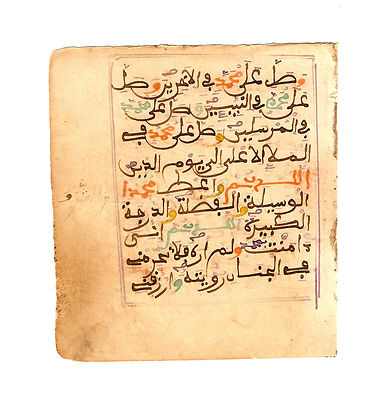 وصل على محمد في الاخرين وصل
على محمد في النبيين وصل على محمد
في المرسلين وصل على محمد في
الملا الاعلى الى يوم الدين
اللهم اعط محمدا
الوسيلة والفضيلة والدرجة
الكبيرة اللهم انى
ءامنت بمحمد ولم اره فلا تحرمنى
في الجنان رويته وارزقنى